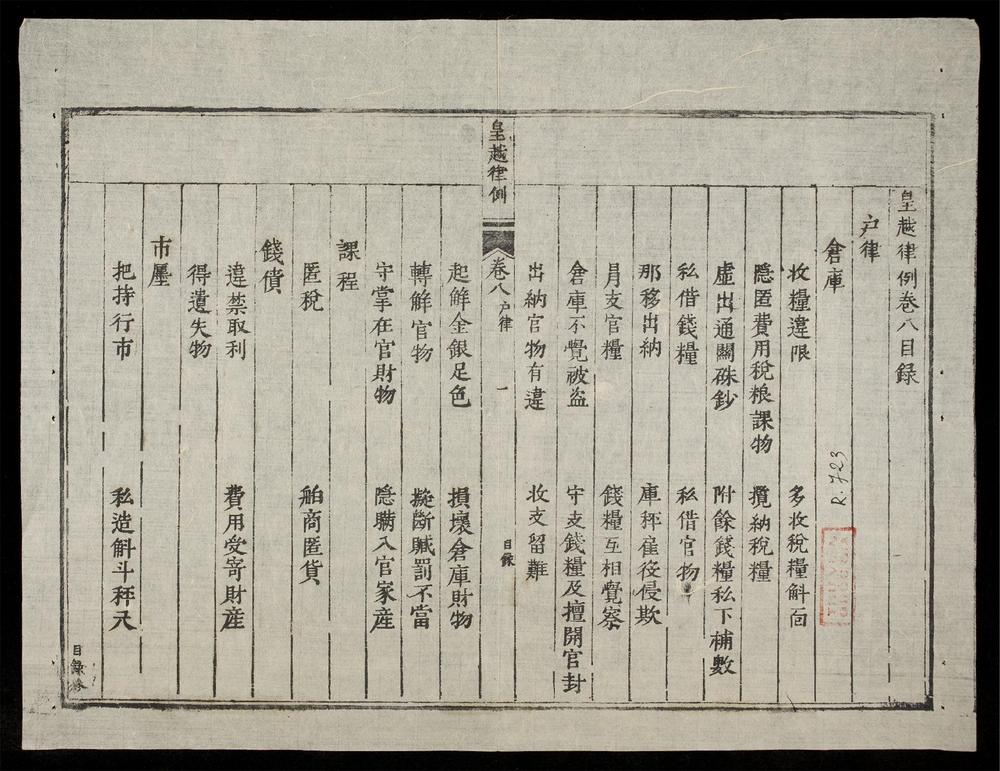 皇越律例卷八目録
户律
倉庫
收糧違限 多收税糧斛面
隱匿費用税粮課物 攬納税糧
虛出通關硃鈔 附餘錢糧私下補數
私借錢糧 私借官物
那移出納 庫秤雇役侵欺
冐支官糧 錢糧互相覺察
倉庫不覺被盗 守支錢糧及擅開官封
出納官物有違 收支留難
皇越律例 卷八 户律 一 目録
起解金銀足色 損壞倉庫財物
轉解官物 擬斷贓罰不當
守掌在官財物 隱瞞入官家産
課程
匿税 舶商匿貨
錢債
違禁取利 費用受寄財産
得遺失物
市廛
把持行市 私造斛斗秤尺
目録終
R.723